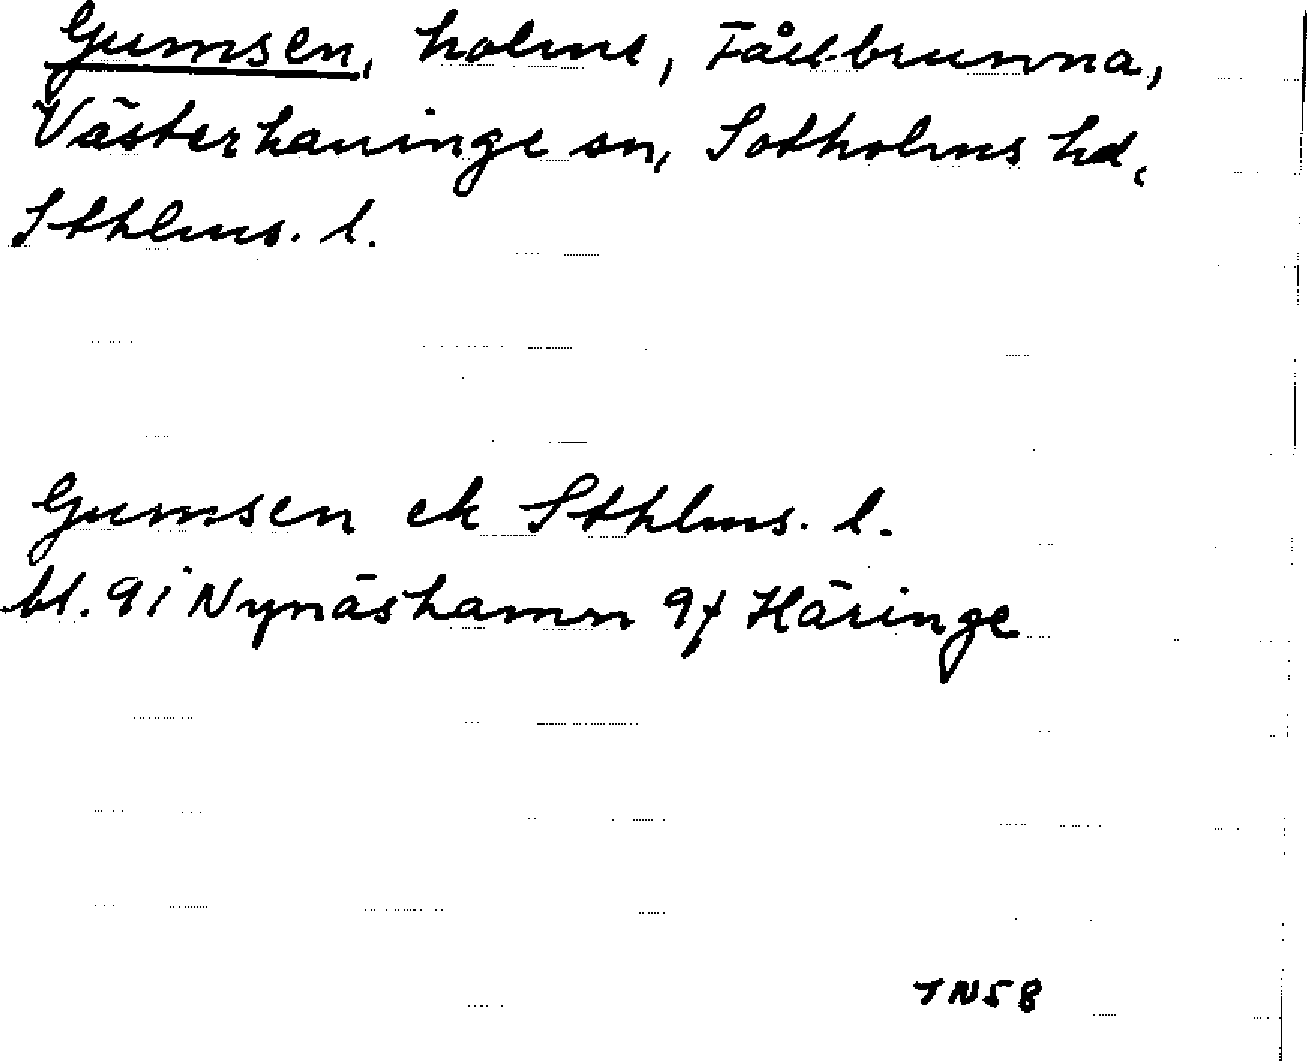 Gumsen, holme, Fållbrunna,
Västerhaninge sn, Sotholms hd,
Sthlms. l.
Gumsen ek Sthlms. l.
bl. 91 Nynäshamn 94 Häringe
TN58